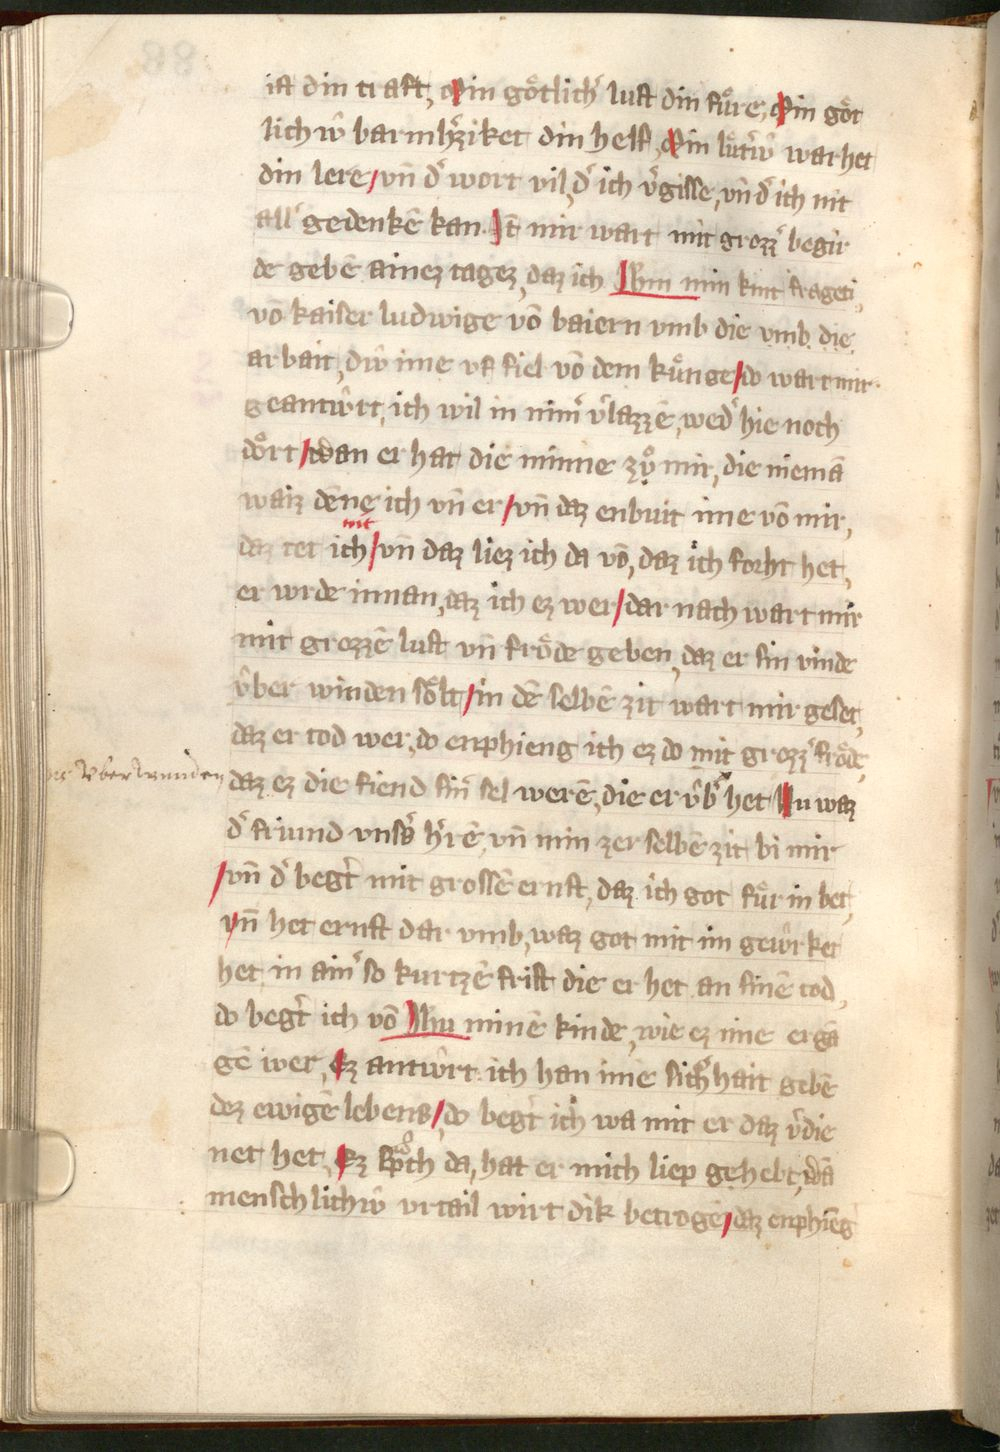 ist din craft, Min goͤtlichˀ lust din fuͤre, Min goͤt
lichw̑ barmhˀziket din helf, Min luͤtˀw̑ warhet
din lere / vn̄ dˀ wort vil, dˀ ich vˀgisse, vn̄ dˀ ich nit
allˀ gedenkē kan. Jt̄ mir wart mit grozzˀ begir
de gebē ainez tagez, daz ich Jhm min kint frageti,
vō kaiser ludwige vō baiern vmb die vmb die
arbait, diw̑ ime vf fiel vō dem kuͤnge / do wart mir
geantw̑rt, ich wil in nimˀ vˀlazzē, wedˀ hie noch
doͤrt / wan er hat die minne zvͦ mir, die niemā
waiz dēne ich vn̄ er / vn̄ daz enbuit ime vō mir,
daz tet ich nit / vn̄ daz liez ich da vō, daz ich forht het,
er wrde innan, daz ich ez wer / dar nach wart mir
mit grozzē lust vn̄ froͤde geben, daz er sin vinde
v̑ber winden soͤlt / in dē selbē zit wart mir geset,
daz er tod wer, do enphieng ich ez do mit grozzˀ froͤde,
daz ez die fiend sinˀ sel werē, die er v̑bˀ het Nu waz
vberwunden
dˀ friund vnsˀs hˀrē vn̄ min zer selbē zit bi mir
/ vn̄ dˀ begˀt mit grossē ernst, daz ich got fuͤr in bet,
vn̄ het ernst dar vmb, waz got mit im gew̑rket
het in ainˀ so kurtzē frist die er het an sinē tod,
do begˀt ich vō Jhu minē kinde, wie ez ime ergā
gē wer, Ez antw̑rt ich han ime sichˀhait gebē
dez ewigē lebens / do begˀt ich wa mit er daz vˀdie
net het, Ez sproͤch da, hat er mich liep gehebt, wā
menschlichw̑ vrtail wirt dik betrogē / daz enphieng